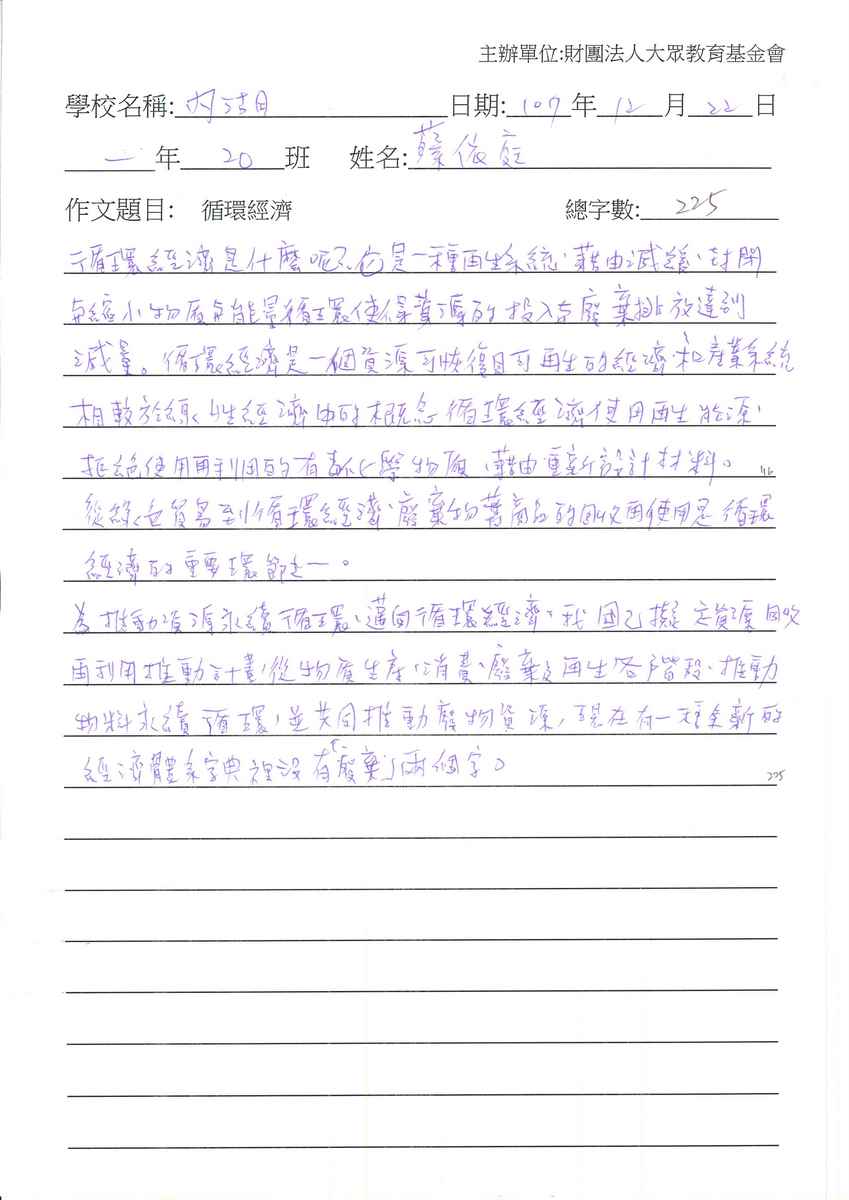 主辦單位:財團法人大眾教育基金會
學校名稱: 內 日期: 107 年 12 月 22 日
一 年 20 班 姓名: 蔡依庭
作文題目: 循環經濟 總字數: 225
循環經濟是什麼呢?它是一種再生系統,藉由減緩、封閉
與縮小物質與能量循環使得資源的投入與廢棄排放達到
減量。循環經濟是一個資源可恢復且可再生的經濟和產業系統
相較於線性經濟中的概念循環經濟使用再生能源,
拒絕使用再利用的有毒化學物質,藉由重新設計材料。 116
從綠色貿易到循環經濟,廢棄物舊商品的回收再使用是循環
經濟的重要環節之一。
為推動資源永續循環、邁向循環經濟,我國已擬定資源回收
再利用推動計劃,從物質生產、消費、廢棄及再生各階段,推動
物料永續循環,並共同推動廢物資源,現在有一種全新的
經濟體系字典裡沒有「廢棄」兩個字。 225